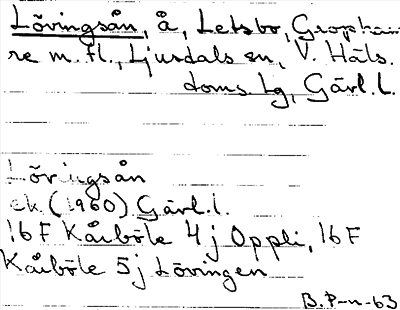 Lövingsån, å, Letsbo, Gropham
re m. fl., Ljusdals sn, V. Häls.
doms. tg, Gävl. l.
Lövingsån
ek. (1960) Gävl. l.
16F Kårböle 4 j Oppli, 16F
Kårböle 5 j Lövingen
B. P-n -63